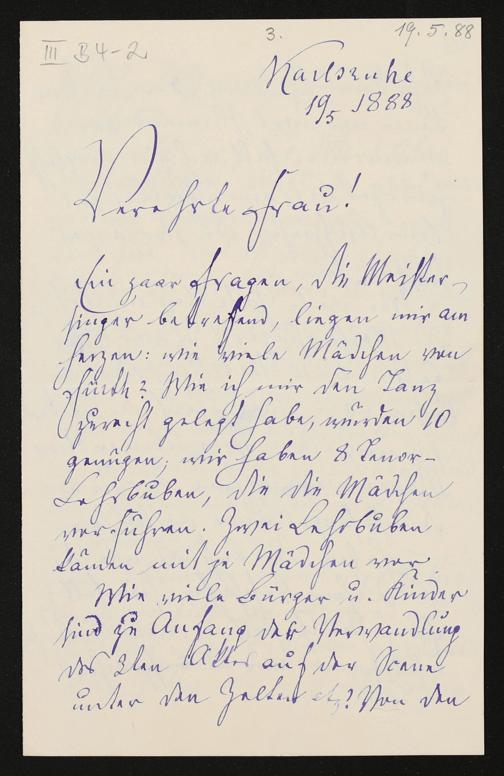 III B4-2
3.
19. 5. 88
Karlsruhe
19/5 1888
Verehrte Frau!
Ein paar Fragen, die Meister-
singer betreffend, liegen mir am
Herzen: wie viele Mädchen von
Fürth? Wie ich mir den Tanz
zurecht gelegt habe, würden 10
genügen; wir haben 8 Tenor-
Lehrbuben, die die Mädchen
vorführen. Zwei Lehrbuben
kämen mit je Mädchen vor.
Wie viele Bürger u. Kinder
sind zu Anfang der Verwandlung
des 3ten Aktes auf der Scene
unter den Zelten etz? Von den